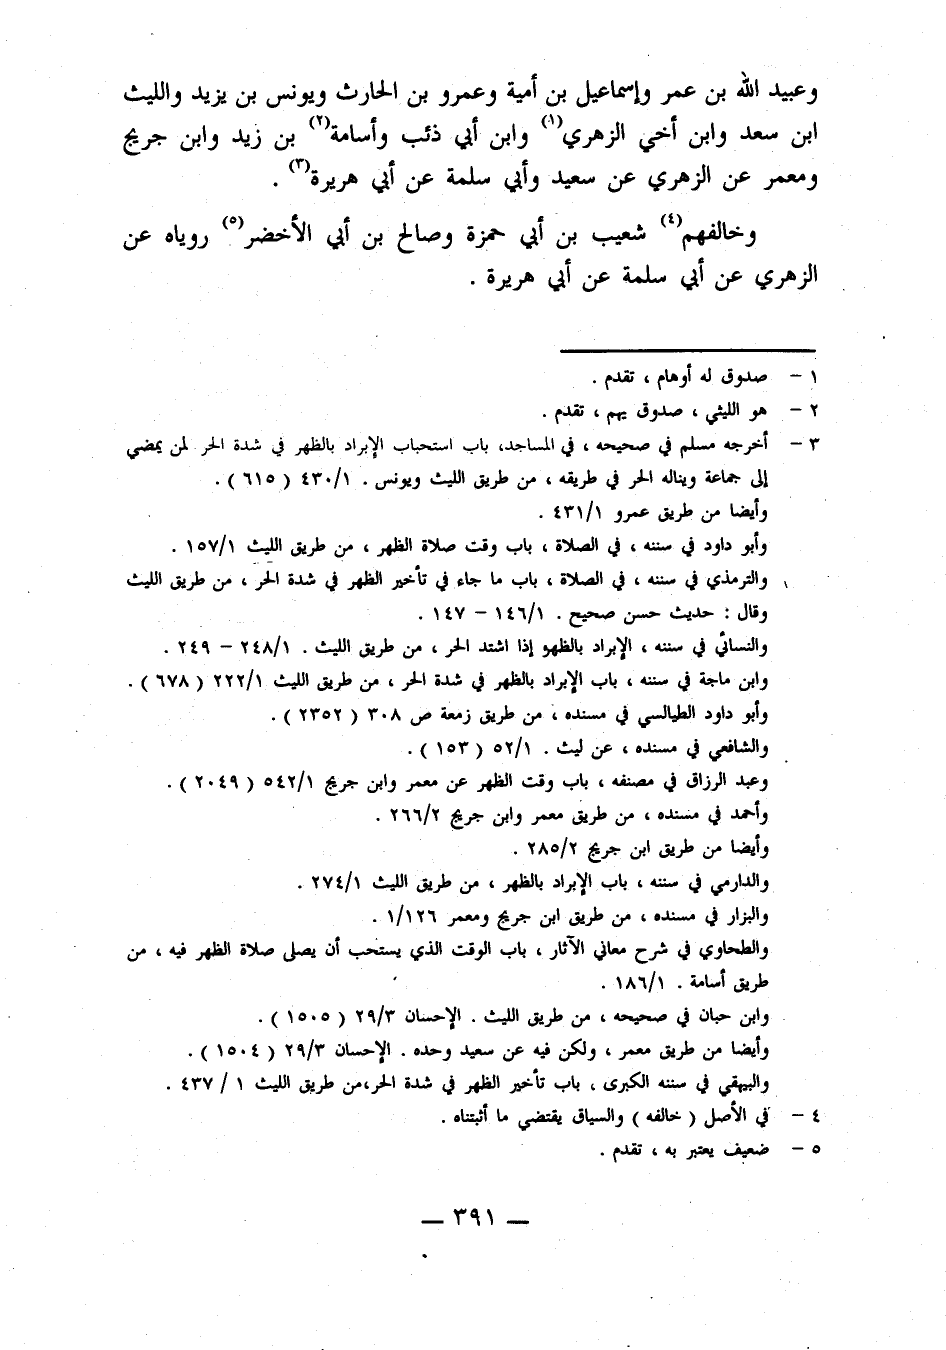 وعبيد الله بن عمر وإسماعيل بن أمية وعمرو بن الحارث ويونس بن يزيد والليث
ابن سعد وابن أخي الزهري(١) وابن أبي ذئب وأسامة(٢) بن زيد وابن جريج
ومعمر عن الزهري عن سعيد وأبي سلمة عن أبي هريرة(٣) .
وخالفهم(٤) شعيب بن أبي حمزة وصالح بن أبي الأخضر(٥) روياه عن
الزهري عن أبي سلمة عن أبي هريرة .
١ – صدوق له أوهام ، تقدم .
٢ – هو الليثي ، صدوق يهم ، تقدم .
٣ – أخرجه مسلم في صحيحه ، في المساجد، باب استحباب الإبراد بالظهر في شدة الحر لمن يمضي
إلى جماعة ويناله الحر في طريقه ، من طريق الليث ويونس . ٤٣٠/١ ( ٦١٥ ) .
وأيضا من طريق عمرو ٤٣١/١ .
وأبو داود في سننه ، في الصلاة ، باب وقت صلاة الظهر ، من طريق الليث ١٥٧/١ .
والترمذي في سننه ، في الصلاة ، باب ما جاء في تأخير الظهر في شدة الحر ، من طريق الليث
وقال : حديث حسن صحيح . ١٤٦/١ – ١٤٧ .
والنسائي في سننه ، الإبراد بالظهو إذا اشتد الحر ، من طريق الليث . ٢٤٨/١ – ٢٤٩ .
وابن ماجة في سننه ، باب الإبراد بالظهر في شدة الحر ، من طريق الليث ٢٢٢/١ ( ٦٧٨ ) .
وأبو داود الطيالسي في مسنده ، من طريق زمعة ص ٣٠٨ ( ٢٣٥٢ ) .
والشافعي في مسنده ، عن ليث . ٥٢/١ ( ١٥٣ ) .
وعبد الرزاق في مصنفه ، باب وقت الظهر عن معمر وابن جريج ٥٤٢/١ ( ٢٠٤٩ ) .
وأحمد في مسنده ، من طريق معمر وابن جريج ٢٦٦/٢ .
وأيضا من طريق ابن جريج ٢٨٥/٢ .
والدارمي في سننه ، باب الإبراد بالظهر ، من طريق الليث ٢٧٤/١ .
والبزار في مسنده ، من طريق ابن جريج ومعمر ١/١٢٦ .
والطحاوي في شرح معاني الآثار ، باب الوقت الذي يستحب أن يصلى صلاة الظهر فيه ، من
طريق أسامة . ١٨٦/١ .
وابن حبان في صحيحه ، من طريق الليث . الإحسان ٢٩/٣ ( ١٥٠٥ ) .
وأيضا من طريق معمر ، ولكن فيه عن سعيد وحده . الإحسان ٢٩/٣ ( ١٥٠٤ ) .
والبيهقي في سننه الكبرى ، باب تأخير الظهر في شدة الحر،من طريق الليث ١ / ٤٣٧ .
٤ – في الأصل ( خالفه ) والسياق يقتضي ما أثبتناه .
٥ – ضعيف يعتبر به ، تقدم .
— ٣٩١ —